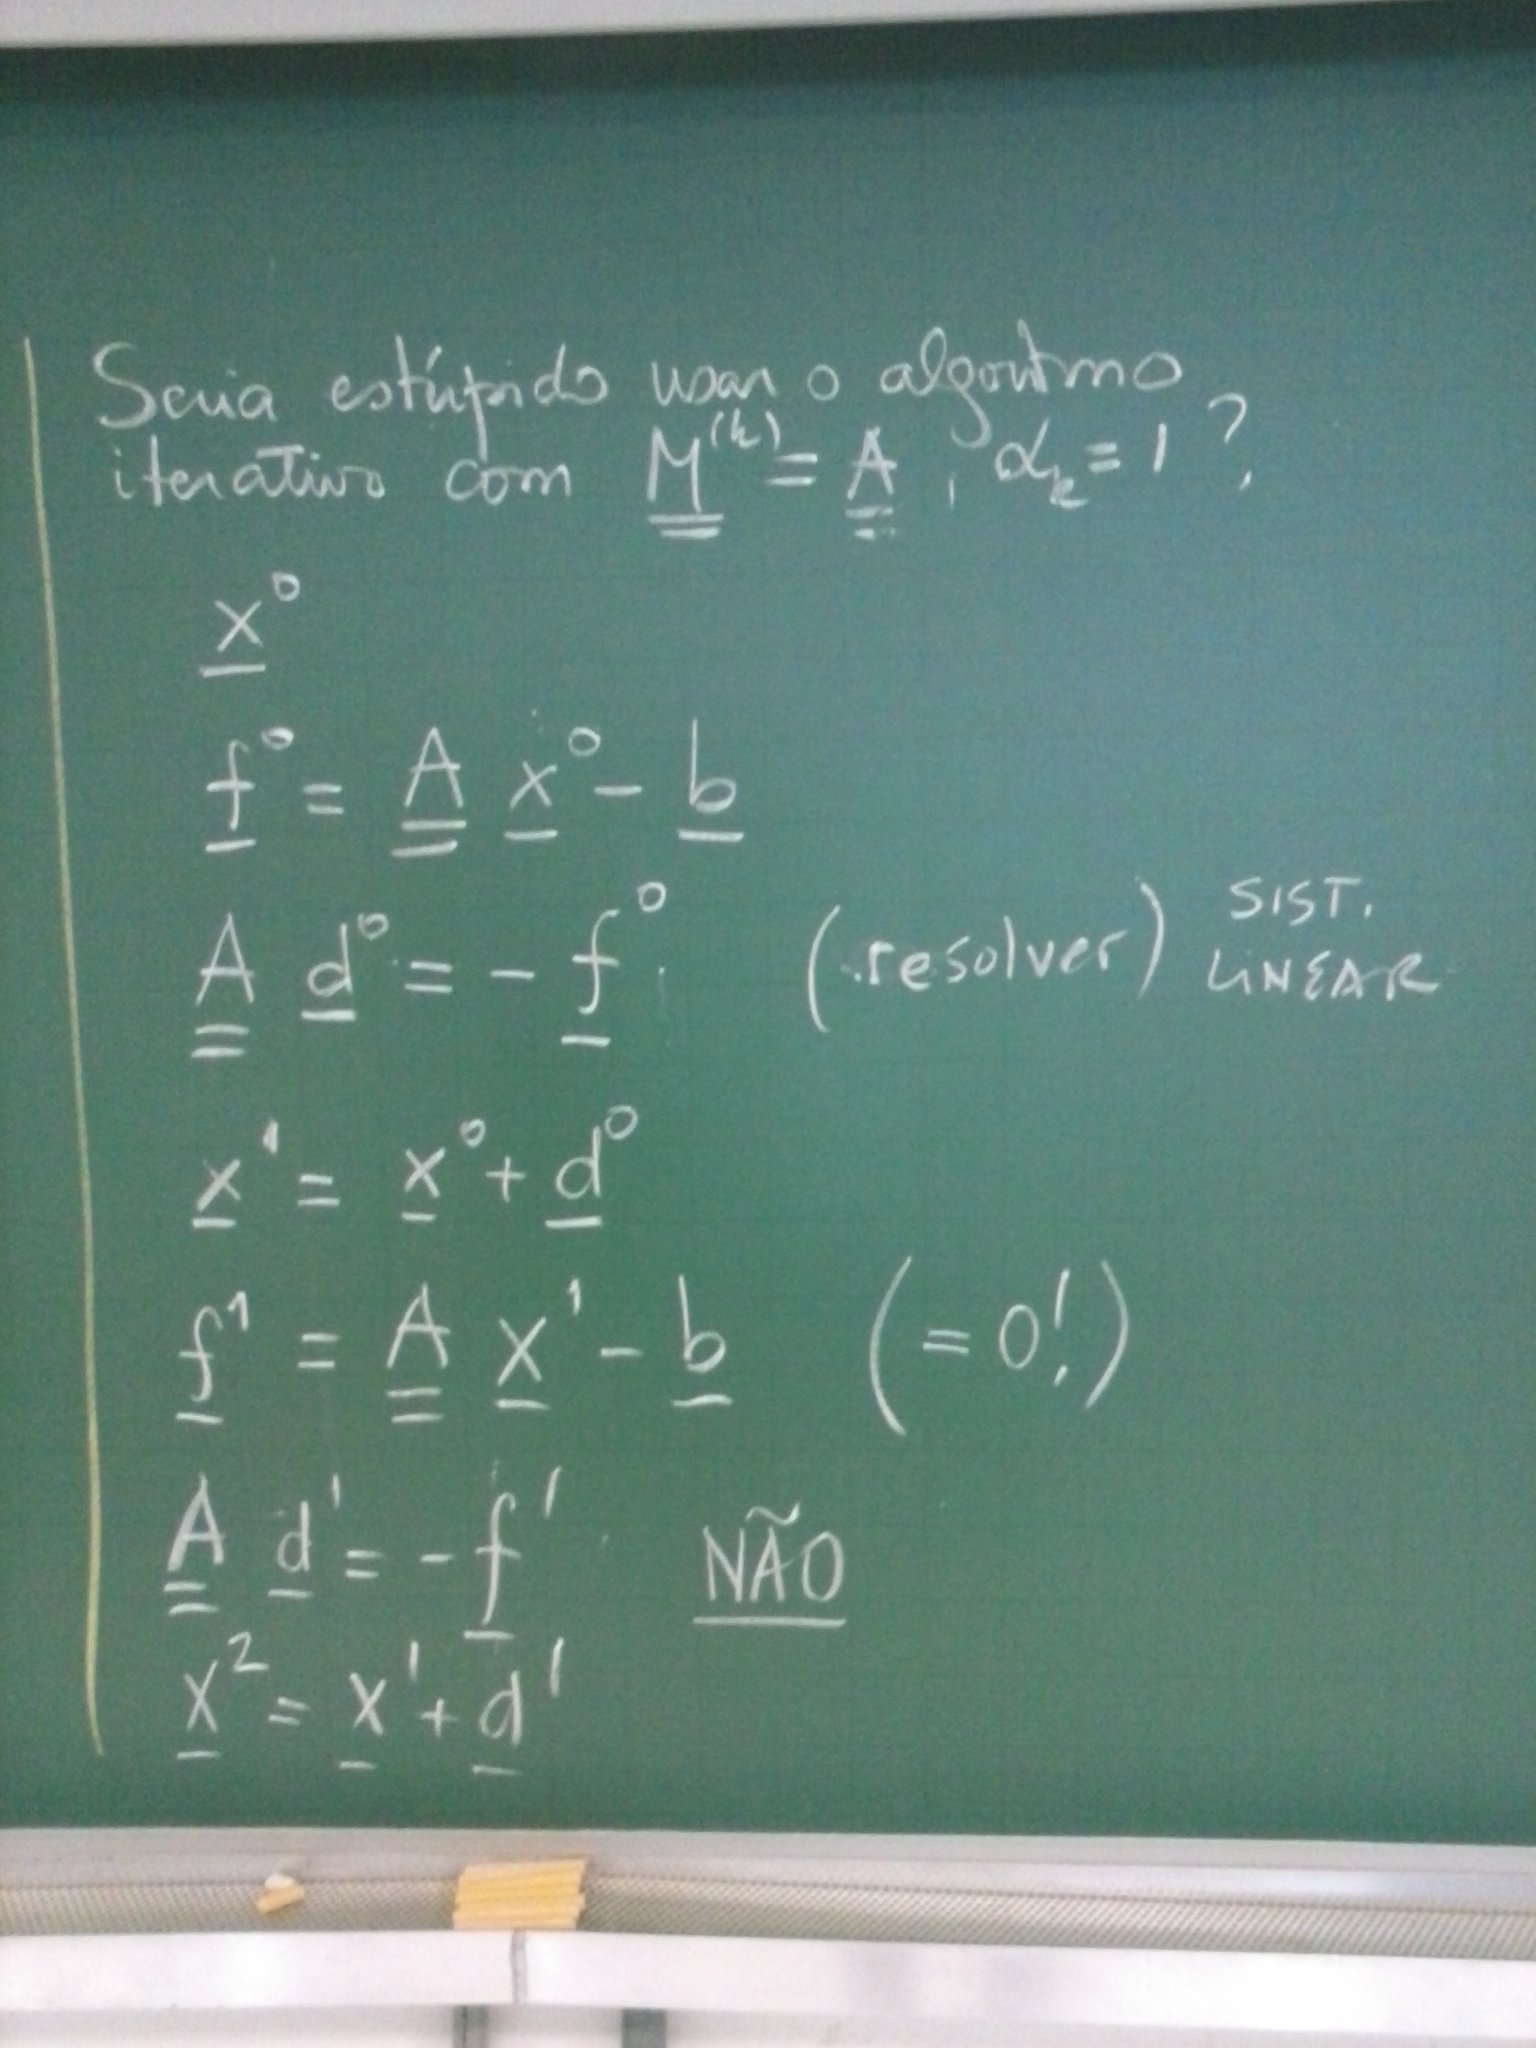 Seria estúpido usar o algoritmo
iterativo com M^(k) = A, α_k = 1?
x^0
f^0 = A x^0 - b
A d^0 = - f^0 (resolver) SIST. LINEAR
x^1 = x^0 + d^0
f^1 = A x^1 - b (= 0!)
A d^1 = - f^1 NÃO
x^2 = x^1 + d^1